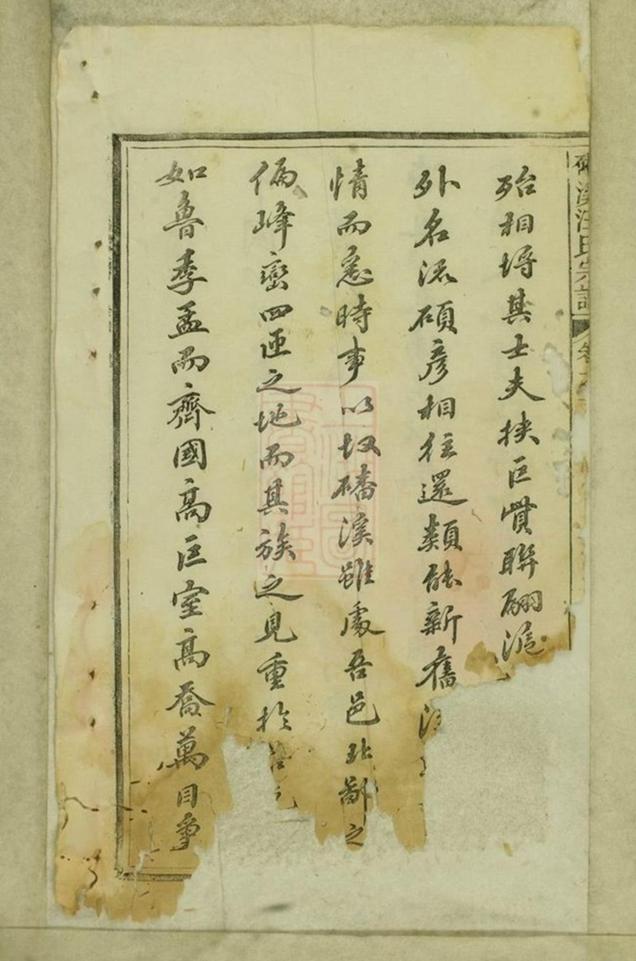 溪汪氏宗譜 卷
殆相埒其士夫挾巨貲聯翩滬
外名流碩彥相往還類能新舊
情而悉時事以故磻溪雖處吾邑北鄙之
偏峰巒四匝之地而其族之見重於
如魯季孟而齊國高巨室高喬萬目爭